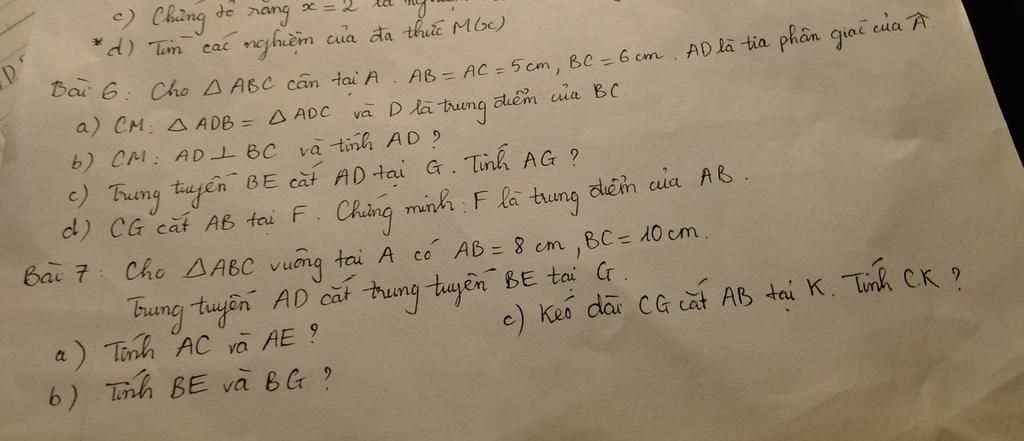 c) Chứng tỏ rằng x = 2 là
* d) Tìm các nghiệm của đa thức M(x)
Bài 6: Cho △ABC cân tại A. AB = AC = 5cm, BC = 6cm. AD là tia phân giác của Â.
a) CM: △ADB = △ADC và D là trung điểm của BC
b) CM: AD ⊥ BC và tính AD ?
c) Trung tuyến BE cắt AD tại G. Tính AG ?
d) CG cắt AB tại F. Chứng minh: F là trung điểm của AB.
Bài 7: Cho △ABC vuông tại A có AB = 8 cm, BC = 10 cm.
Trung tuyến AD cắt trung tuyến BE tại G.
a) Tính AC và AE ?
b) Tính BE và BG ?
c) Kéo dài CG cắt AB tại K. Tính CK ?